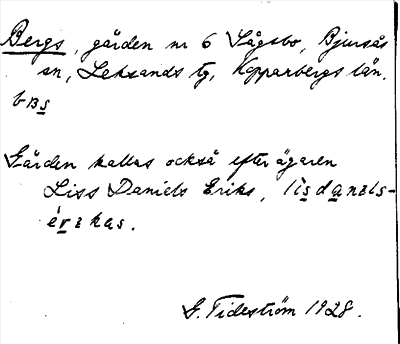 Bergs, gården nr 6 Sågsbo, Bjursås
sn, Leksands tg, Kopparbergs län.
bɪʙs
Gården kallas också efter ägaren
Liss Daniels Eriks, lìsdanɪls-
érɪkas.
G. Tideström 1928.